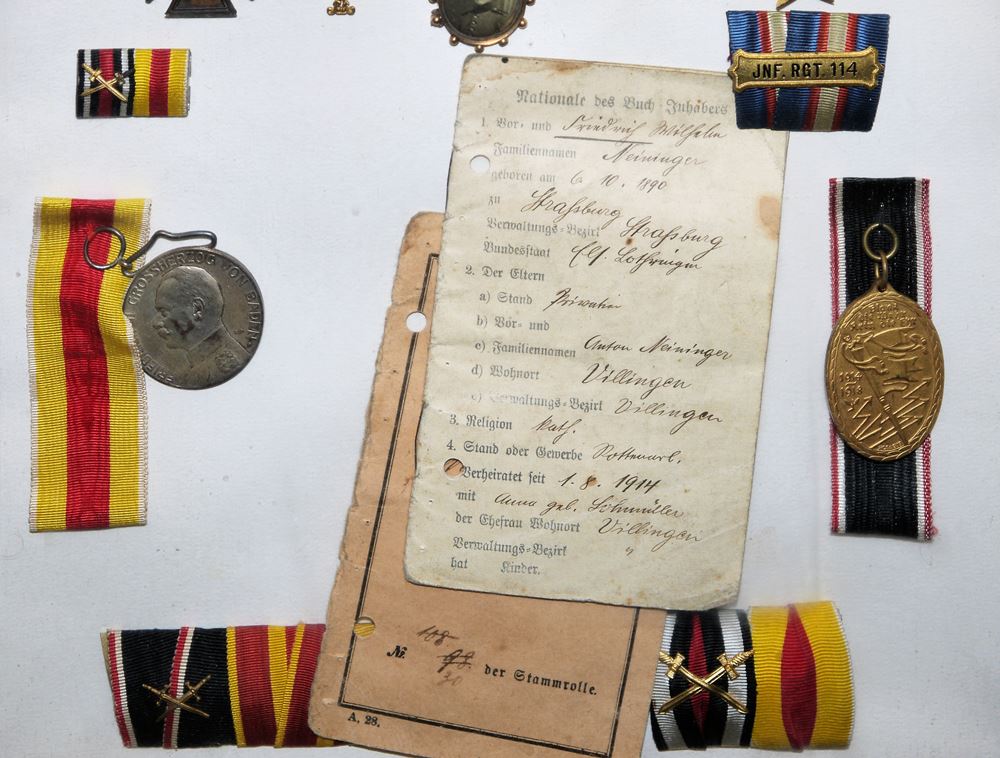 JNF. RGT. 114
Nationale des Buch-Inhabers
1. Vor- und Friedrich Wilhelm
Familiennamen Neininger
geboren am 6. 10. 1890
zu Straßburg
Verwaltungs-Bezirk Straßburg
Bundesstaat Els. Lothringen
2. Der Eltern
a) Stand Privatier
b) Vor- und
c) Familiennamen Anton Neininger
d) Wohnort Villingen
e) Verwaltungs-Bezirk Villingen
3. Religion kath.
4. Stand oder Gewerbe
Verheiratet seit 1. 8. 1914
mit Anna geb.
der Ehefrau Wohnort Villingen
Verwaltungs-Bezirk "
hat Kinder.
GROSHERZOG VON BADEN
1914
1918
№ 108
98.
30
der Stammrolle.
A. 28.